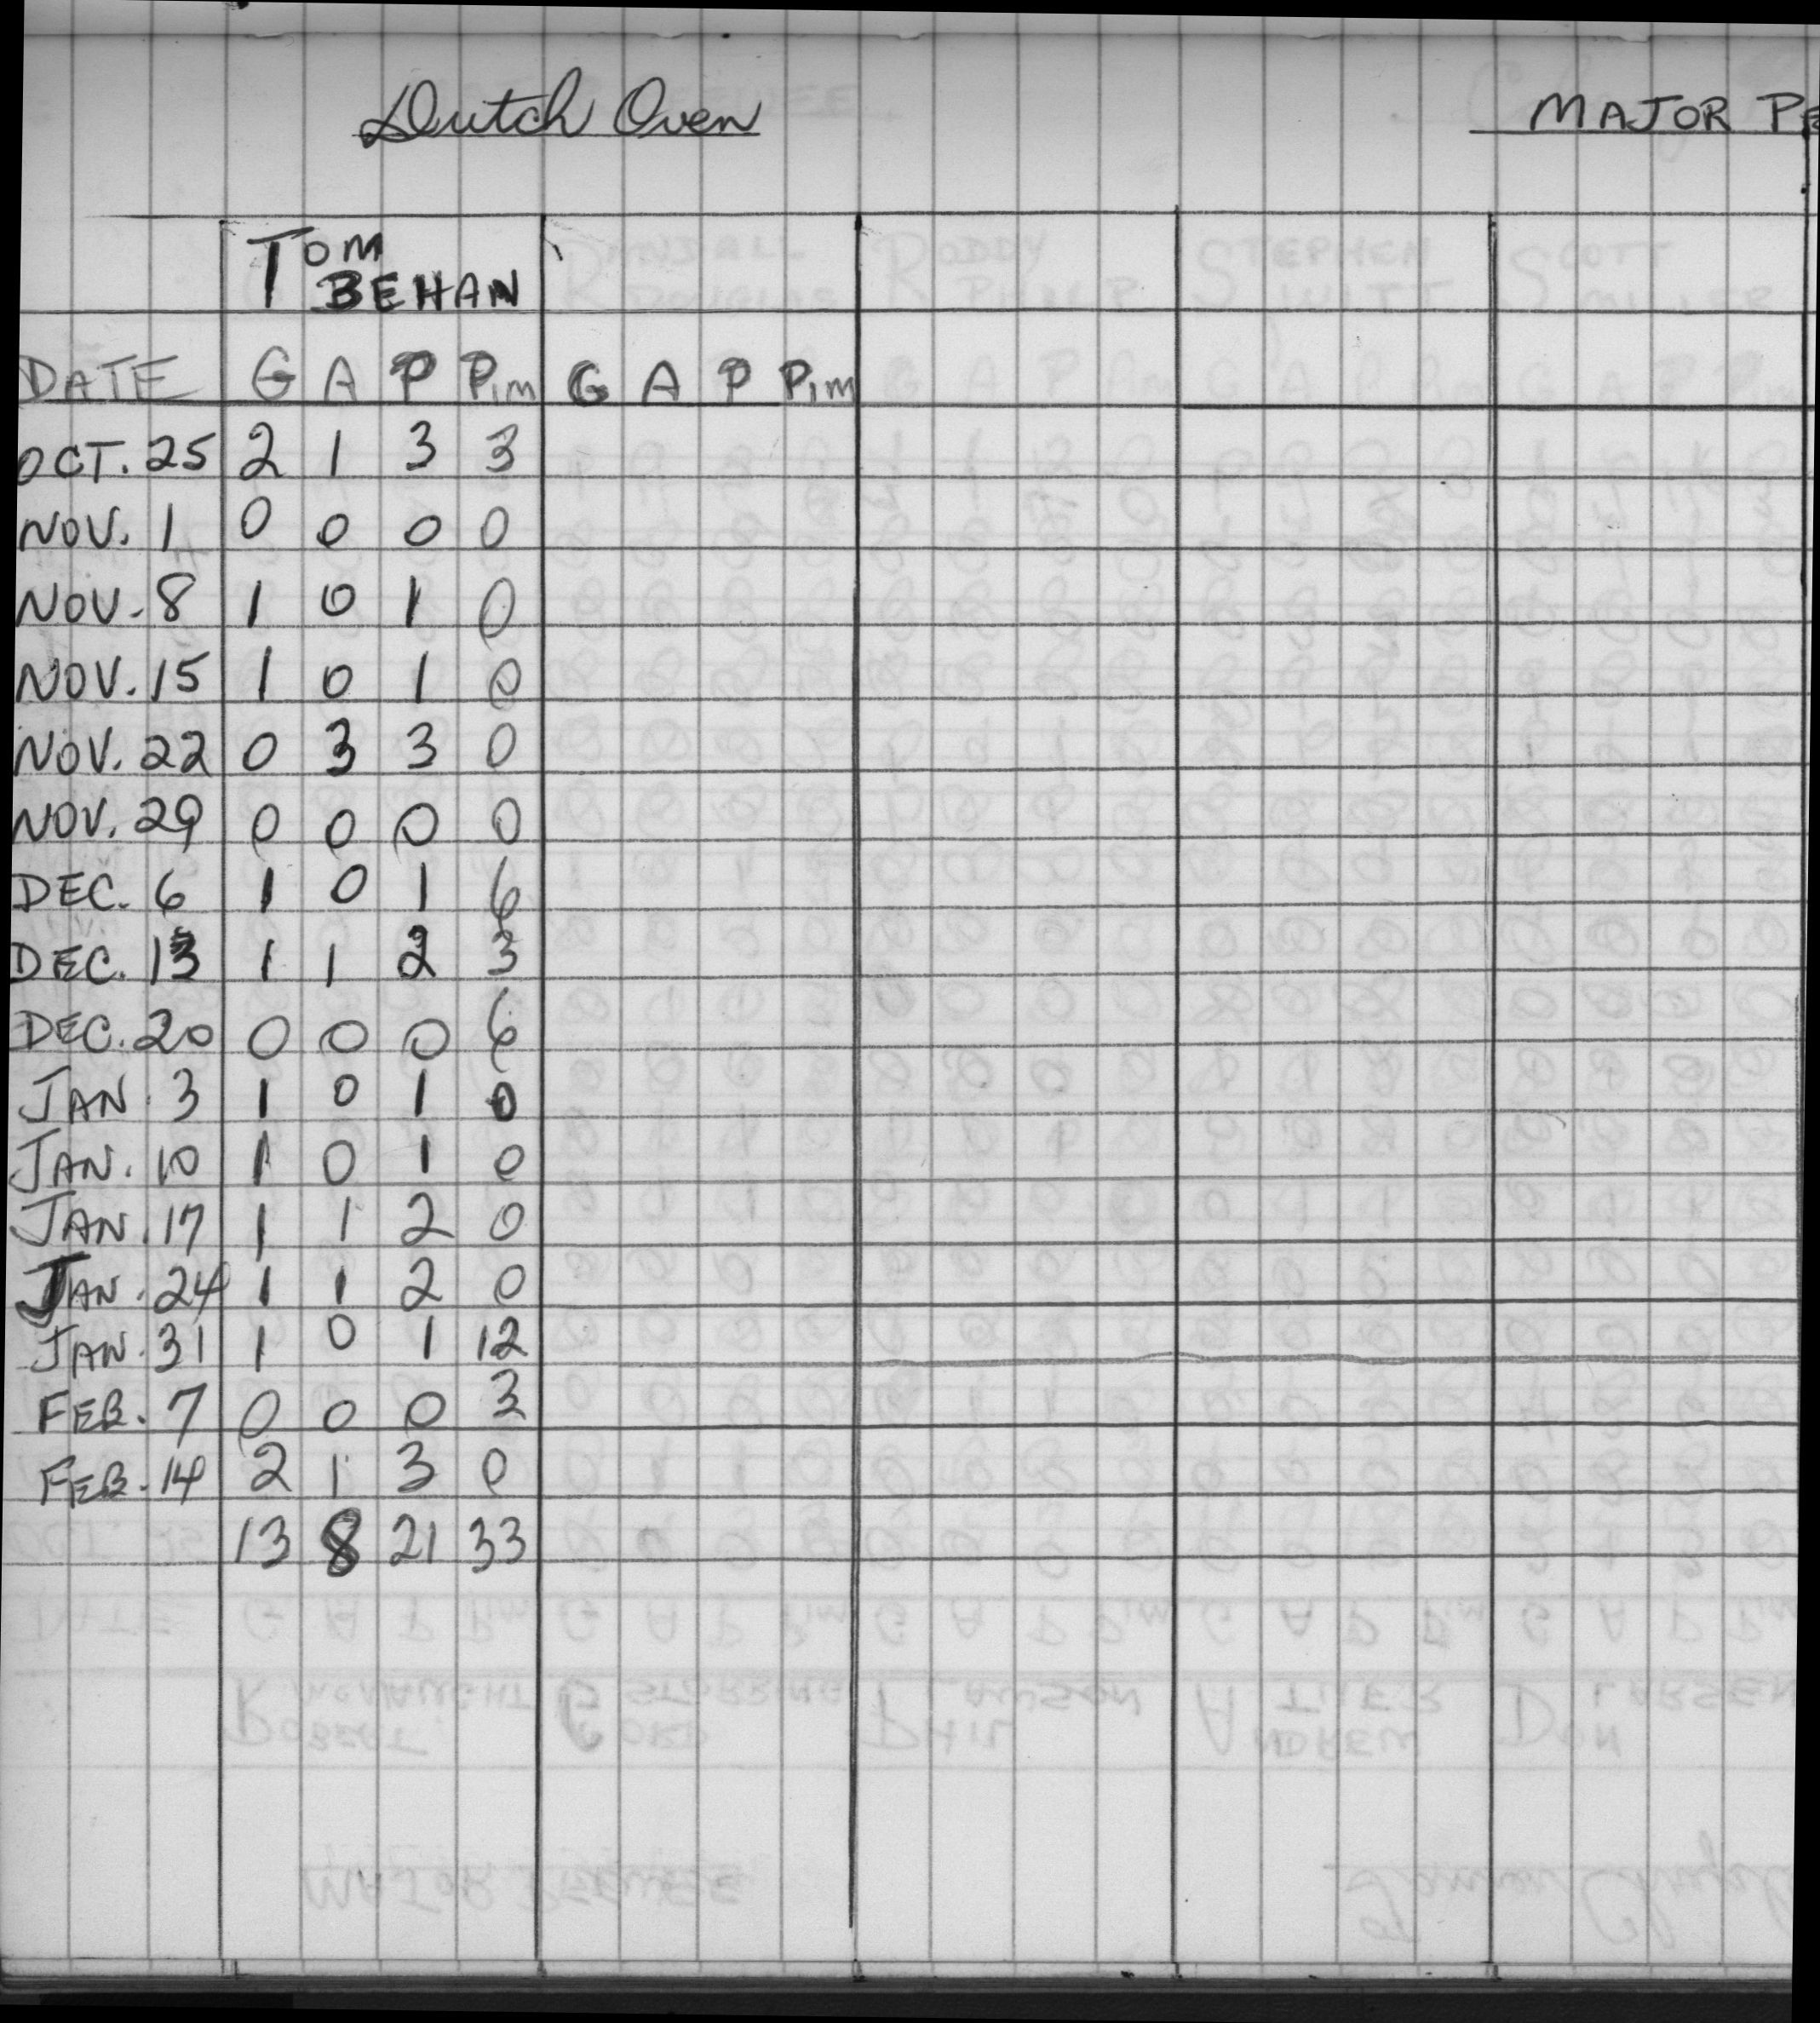 Dutch Oven MAJOR PE
TOM
BEHAN
DATE G A P PIM G A P PIM
OCT. 25 2 1 3 3
NOV. 1 0 0 0 0
NOV. 8 1 0 1 0
NOV. 15 1 0 1 0
NOV. 22 0 3 3 0
NOV. 29 0 0 0 0
DEC. 6 1 0 1 6
DEC. 13 1 1 2 3
DEC. 20 0 0 0 6
JAN. 3 1 0 1 0
JAN. 10 1 0 1 0
JAN. 17 1 1 2 0
JAN. 24 1 1 2 0
JAN. 31 1 0 1 12
FEB. 7 0 0 0 3
FEB. 14 2 1 3 0
13 8 21 33